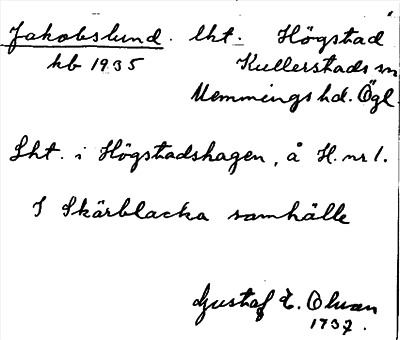 Jakobslund. lht. Högstad
kb 1935 Kullerstads sn
Memmings hd. Ögl.
Lht. i Högstadshagen, å H. nr 1.
I Skärblacka samhälle
Gustaf E. Olson
1937.